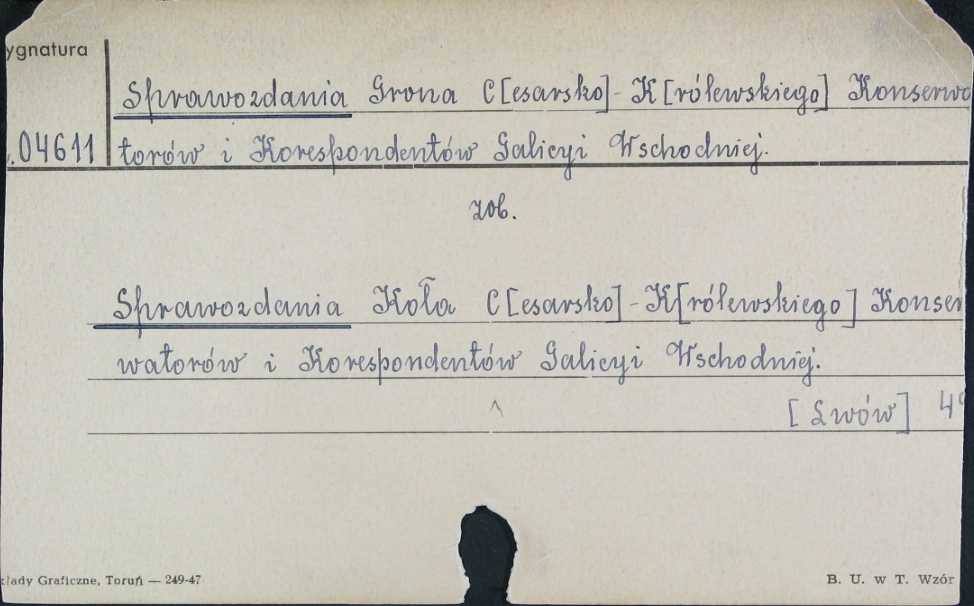 ygnatura
04611
Sprawozdania Grona C[esarsko]-K[rólewskiego] Konserwa
torów i Korespondentów Galicyi Wschodniej.
zob.
Sprawozdania Koła C[esarsko]-K[rólewskiego] Konser
watorów i Korespondentów Galicyi Wschodniej.
[Lwów] 4°
kłady Graficzne, Toruń — 249-47
B. U. w T. Wzór